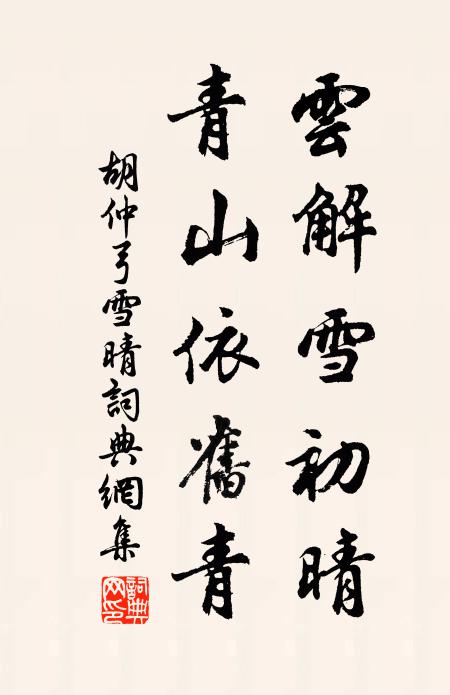 雲解雪初晴
青山依舊青
胡仲弓雪晴詞典網集
詞典網印